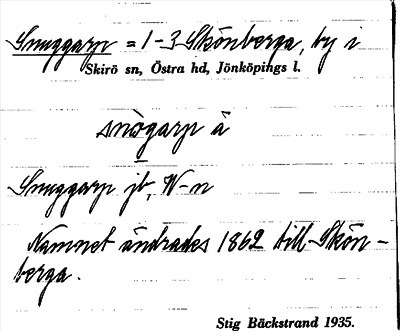 Snuggarp = 1-3 Skönberga, by i
Skirö sn, Östra hd, Jönköpings l.
snògarp å
Snuggarp jb, W-n
Namnet ändrades 1862 till Skön-
berga.
Stig Bäckstrand 1935.